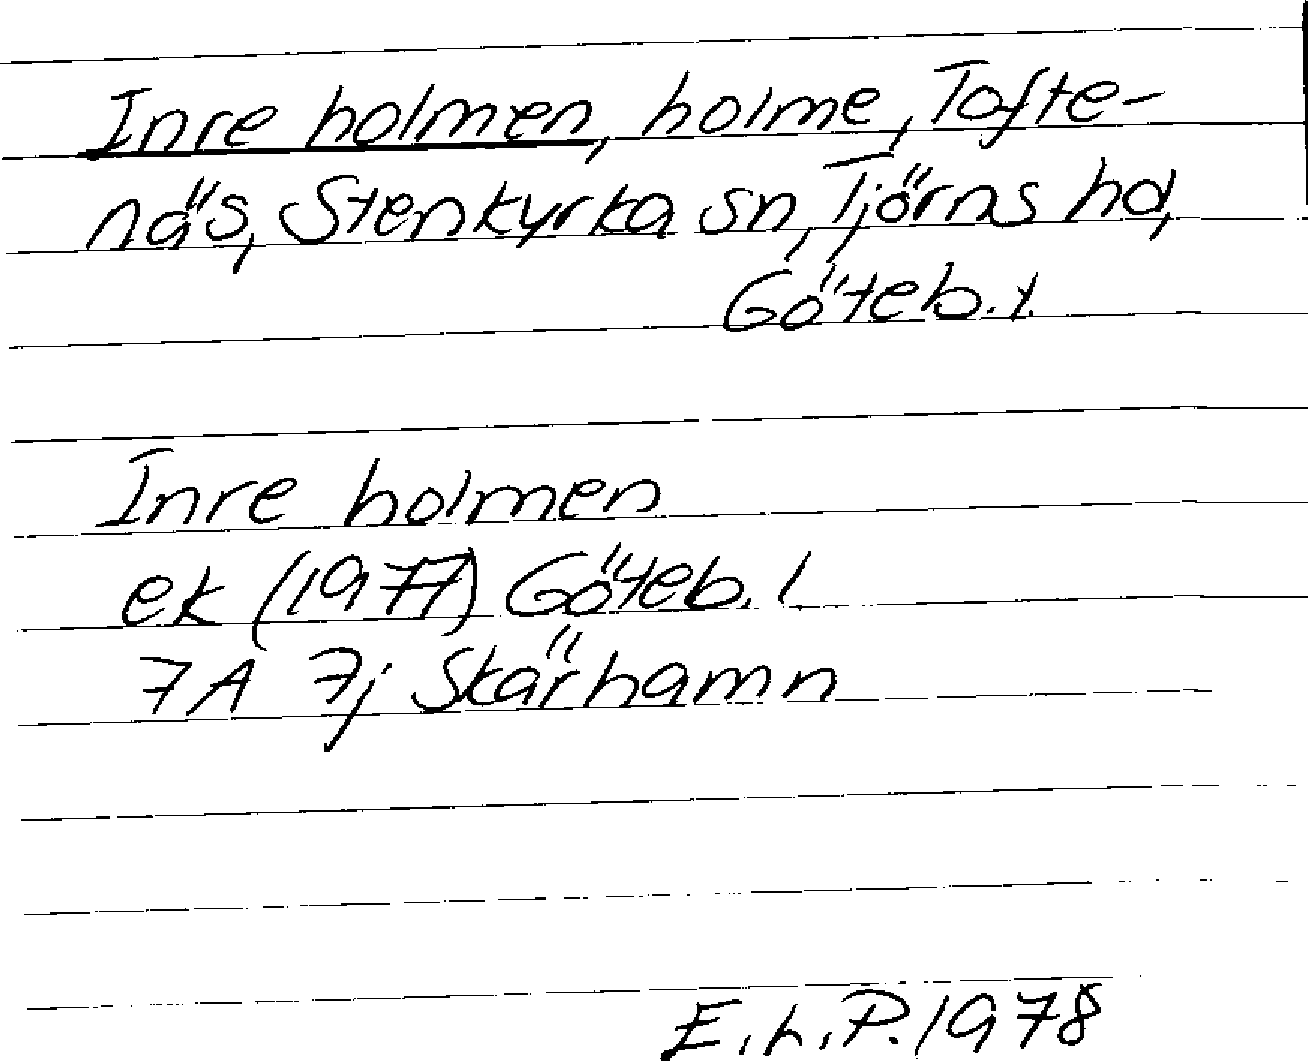 Inre holmen, holme, Tofte-
näs, Stenkyrka sn, Tjörns hd,
Göteb. l.
Inre holmen
ek (1977) Göteb. l
7A 7j Skärhamn
E.h.P. 1978